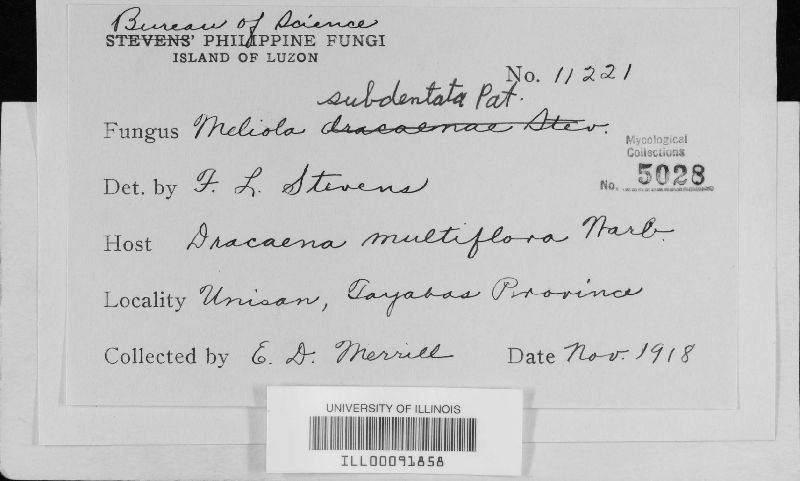 Bureau of Science
STEVENS' PHILIPPINE FUNGI
ISLAND OF LUZON
No. 11221
subdentata Pat.
Fungus Meliola dracaenae Stev.
Mycological
Collections
No. 5028
Det. by F. L. Stevens
Host Dracaena multiflora Warb.
Locality Unisan, Tayabas Province
Collected by E. D. Merrill Date Nov. 1918
UNIVERSITY OF ILLINOIS
ILL00091858